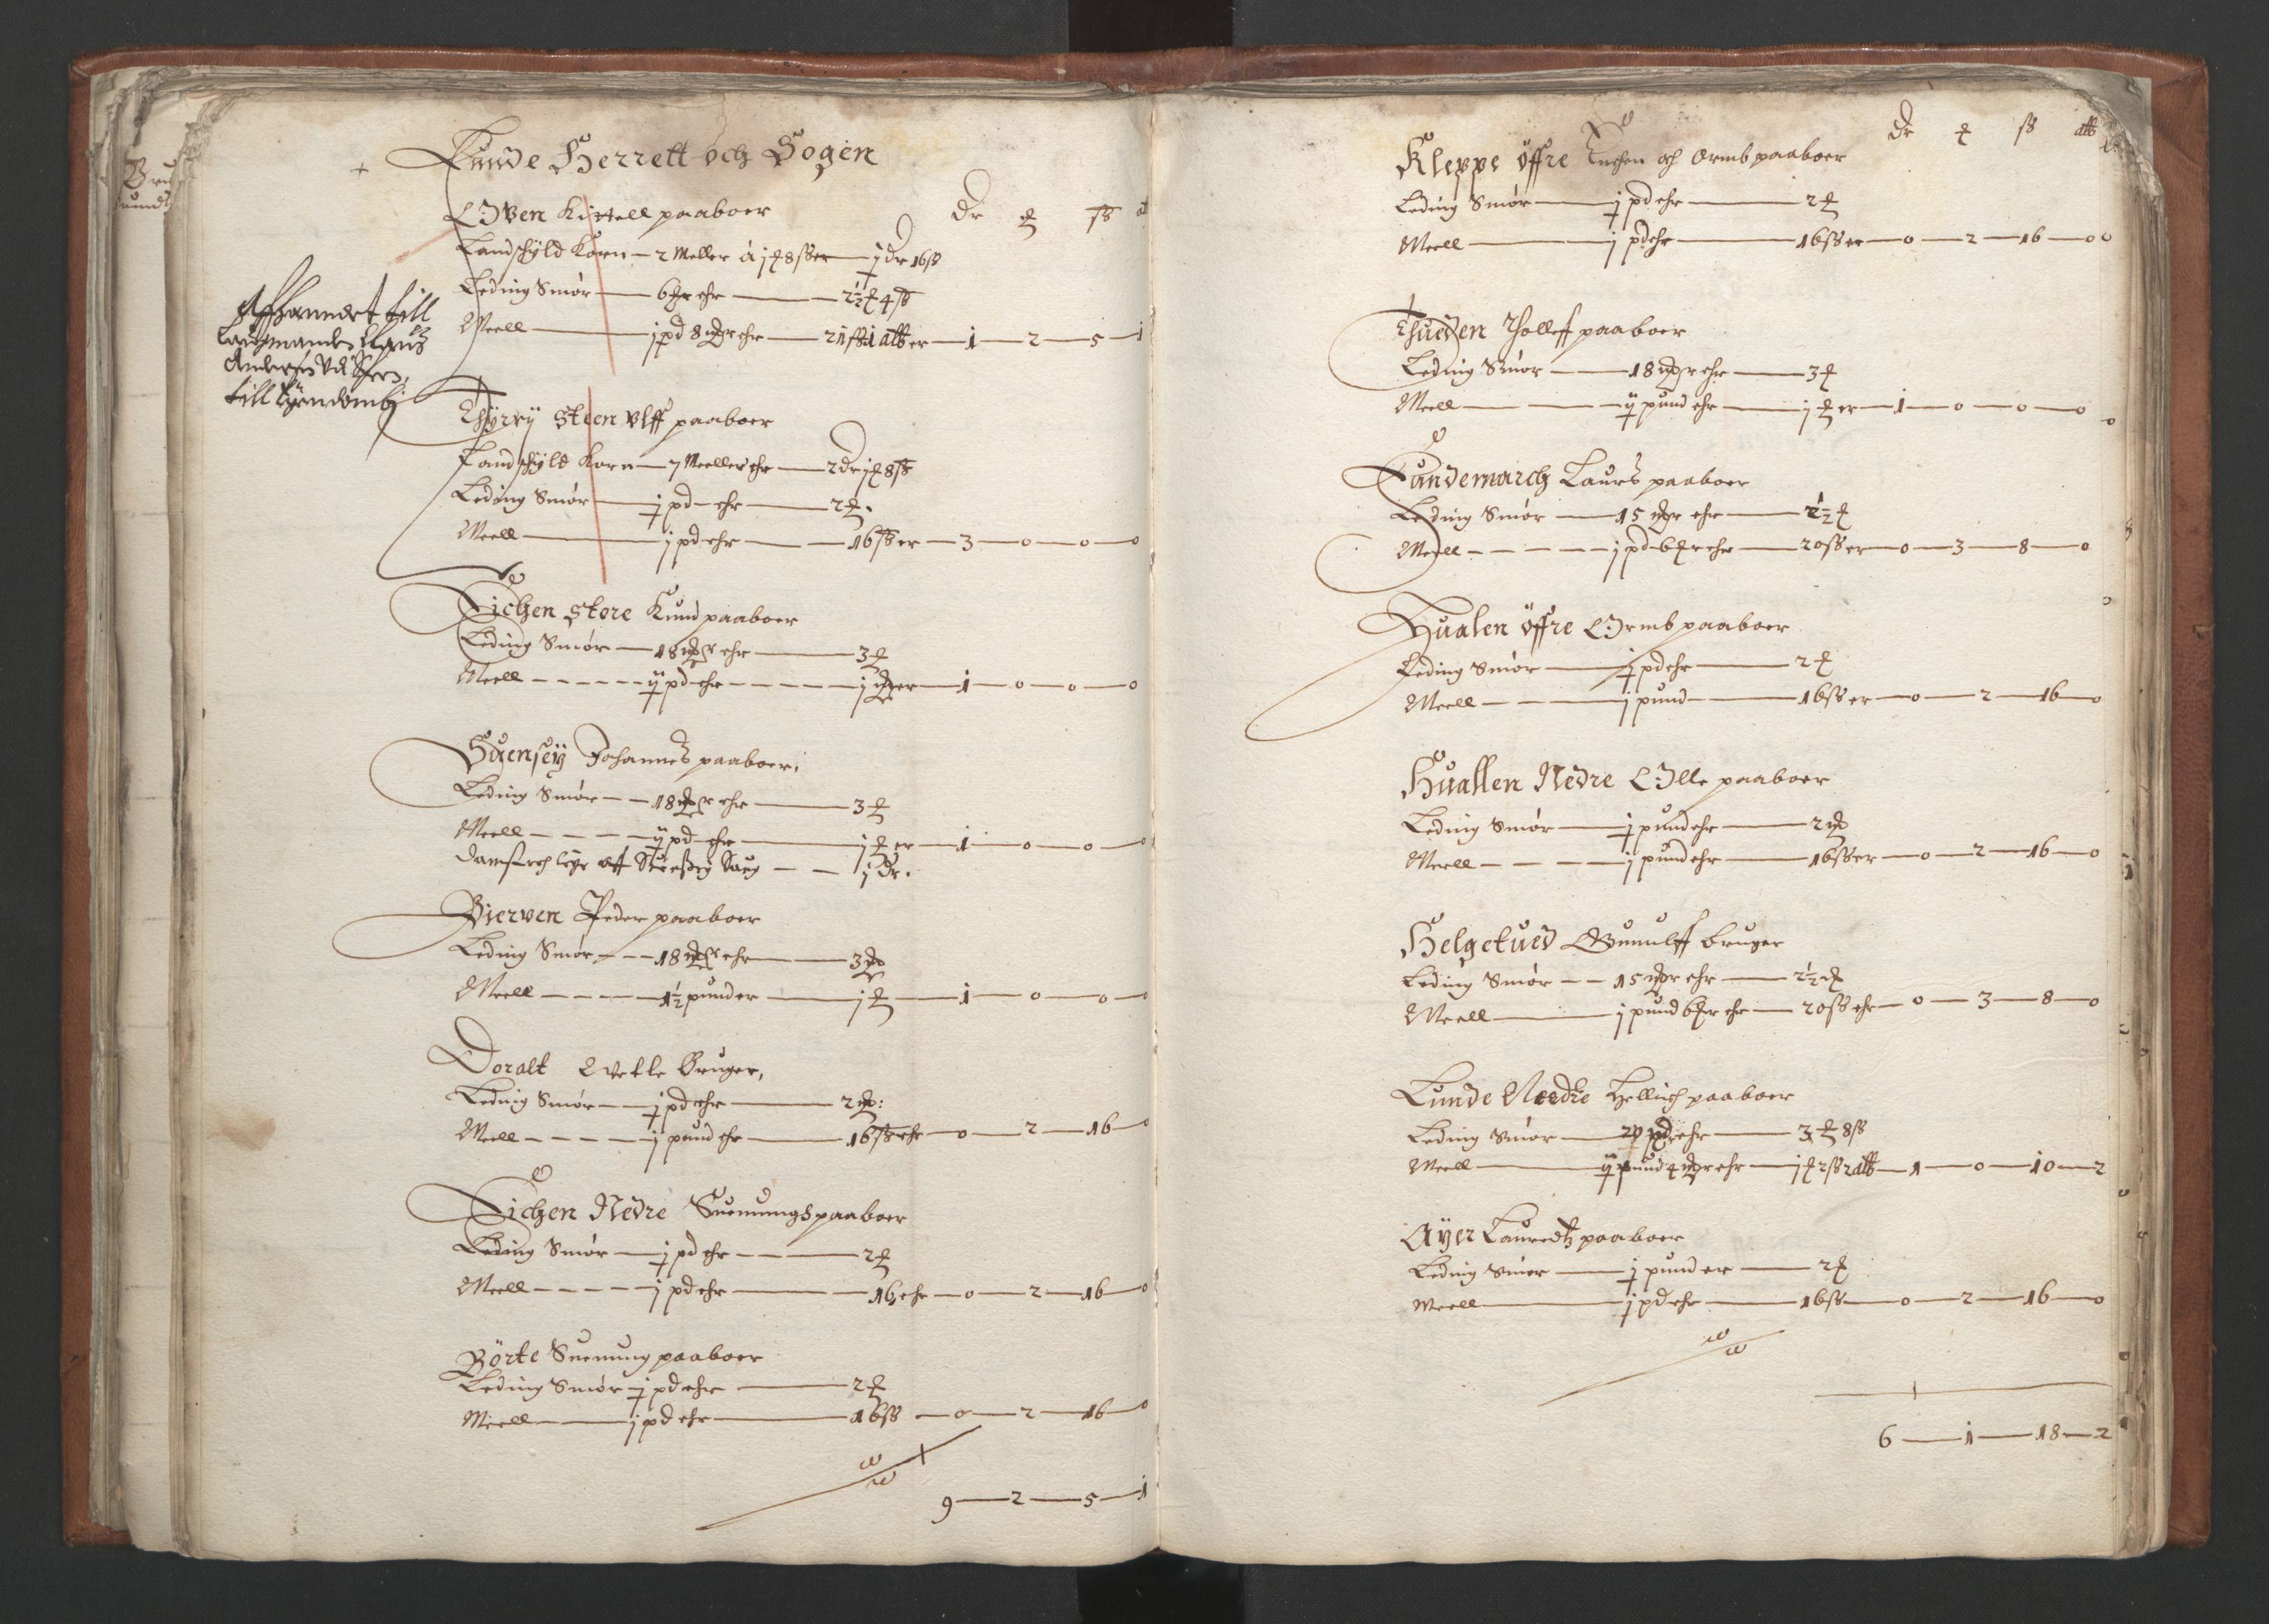 Lunde Herrett och Sogen
dr ß
Oven Kittell paaboer
Landschyld Korn — 2 Meller à j 8 ßer — j dr 16 ß
Leding Smør — 6 ehr — 2½ 4 ß
Meell — j pd 8 ehr — 21 ß 1 alb er — 1 — 2 — 5 — 1
Affhanndet till
Laugmanden Clauß
till
Thyrvij Steen Ulff paaboer
Landschyld Korn — 7 Meeller ehr — 2 dr j 8 ß
Leding Smør — j pd ehr — 2
Meell — j pd ehr — 16 ß er — 3 — 0 — 0 — 0
Lichen Store Knud paaboer
Leding Smør — 18 ehr — 3
Meell — ij pd ehr — j er — 1 — 0 — 0 — 0
Suensøy Johannes paaboer,
Leding Smør — 18 ehr — 3
Meell — ij pd ehr — j er — 1 — 0 — 0 — 0
leye aff Saug — j dr.
Bierven Peder paaboer
Leding Smør — 18 ehr — 3
Meell — 1½ pund er — j — 1 — 0 — 0 — 0
Doralt Bruger,
Leding Smør — j pd ehr — 2
Meell — j pund ehr — 16 ß ehr — 0 — 2 — 16 — 0
Lichen Nedre Suenungs paaboer
Leding Smør — j pd ehr — 2
Meell — j pd ehr — 16 ehr — 0 — 2 — 16 — 0
Børte Suenung paaboer
Leding Smør — j pd ehr — 2
Meell — j pd ehr — 16 ß — 0 — 2 — 16 — 0
9 — 2 — 5 — 1
dr ß alb
Kleppe öffre och Ormb paaboer
Leding Smør — j pd ehr — 2
Meell — j pd ehr — 16 ß er — 0 — 2 — 16 — 0 0
Thueden Tholleff paaboer
Leding Smør — 18 ehr — 3
Meell — ij pund ehr — j er — 1 — 0 — 0 — 0
Lundemarch Laurs paaboer
Leding Smør — 15 ehr — 2½
Meell — j pd 6 ehr — 20 ß er — 0 — 3 — 8 — 0
Hualen öffre Ormb paaboer
Leding Smør — j pd ehr — 2
Meell — j pund — 16 ß er — 0 — 2 — 16 — 0
Huallen Nedre Olle paaboer
Leding Smør — j pund ehr — 2
Meell — j pund ehr — 16 ß er — 0 — 2 — 16 — 0
Helgetued Gunnulff bruger
Leding Smør — 15 ehr — 2½
Meell — j pund 6 ehr — 20 ß ehr — 0 — 3 — 8 — 0
Lunde Needre Hellich paaboer
Leding Smør — 20 ehr — 3 8 ß
Meell — ij pund 4 ehr — j 2 ß 2 alb — 1 — 0 — 10 — 2
Ayer Lauredtz paaboer
Leding Smør — j pund er — 2
Meell — j pd ehr — 16 ß — 0 — 2 — 16 — 0
6 — 1 — 18 — 2